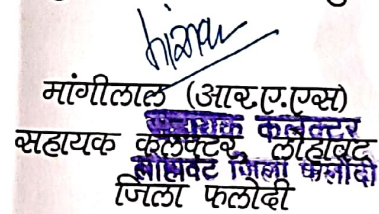 मांगीलाल (आर.ए.एस)
सहायक कलेक्टर
सहायक कलेक्टर, लोहावट
लोहावट जिला फलोदी
जिला फलोदी